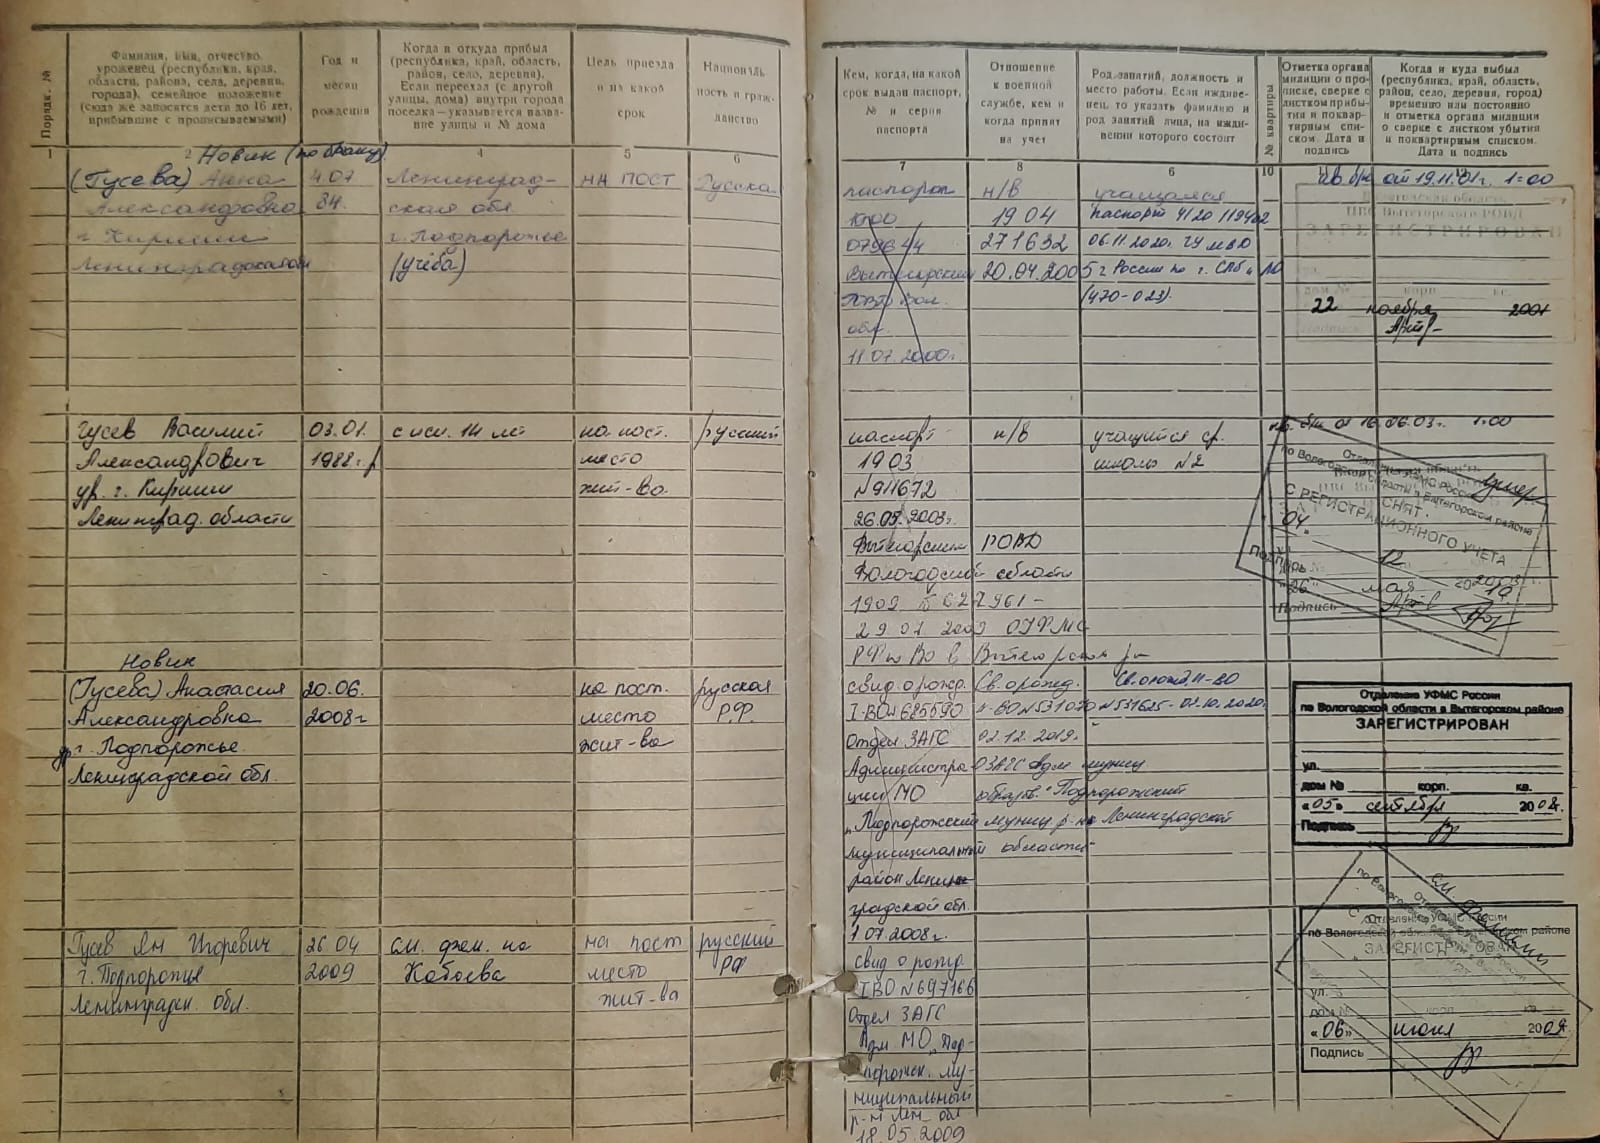 Порядк. №
Фамилия, имя, отчество,
уроженец (республики, края,
области, района, села, деревни,
города), семейное положение
(сюда же заносятся дети до 16 лет,
прибывшие с прописываемыми)
Год и
месяц
рождения
Когда и откуда прибыл
(республики, край, область,
район, село, деревня).
Если переехал (с другой
улицы, дома) внутри города
поселка—указывается назва-
ние улицы и № дома
Цель приезда
и на какой
срок
Националь-
ность и граж-
данство
1 2 4 5 6
Новик (по браку)
(Гусева) Анна
Александровна
г. Кириши
4.07
84.
Ленинград-
ская обл
г. Подпорожье
(учёба)
на пост
Русская
Гусев Василий
Александрович
ур. г. Кириши
Ленинград. области
03.01.
1988г.р
с исп. 14 лет
на пост.
место
жит-ва.
русский
Новик
(Гусева) Анастасия
Александровна
ур г. Подпорожье
Ленинградской обл.
20.06.
2008г
на пост.
место
жит-ва
русская
Р.Ф.
Гусев Ян Игоревич
г. Подпорожья
Ленинградск. обл.
26 04
2009
см. фам. на
на пост
место
жит-ва
русский
РФ
Кем, когда, на какой
срок выдан паспорт,
№ и серия
паспорта
Отношение
к военной
службе, кем и
когда принят
на учет
Род занятий, должность и
место работы. Если иждиве-
нец, то указать фамилию и
род занятий лица, на ижди-
вении которого состоит
№ квартиры
Отметка органа
милиции о про-
писке, сверке с
листком прибы-
тия и поквар-
тирным спи-
ском. Дата и
подпись
Когда и куда выбыл
(республики, край, область,
район, село, деревня, город)
временно или постоянно
и отметка органа милиции
о сверке с листком убытия
и поквартирным списком.
Дата и подпись
7 8 6 10
паспорт
079644
Вытегорским
обл.
11.07.2000г.
н/в
1904
271632
20.04.2005г
учащаяся
паспорт 4120 119402
06.11.2020г. ГУ МВД
России по г. СПб и ЛО
(470-023).
кв б/н от 19.11.01г. 1=00
Вологодская область
ПВС Вытегорского РОВД
ЗАРЕГИСТРИРОВАН
дом № корп. кв.
22 ноября 2001
паспорт
1903
N911672
26.05.2003г.
Вытегорским РОВД
Вологодской области
1909 N 627961-
29 01 2009 ОУФМС
РФ по ВО в Вытегорском р-
н/в
учащийся ср.
школы №2
кв. б/н от 16.06.03г. 1.00
Отделение УФМС России
по Вологодской области в Вытегорском районе
СНЯТ
С РЕГИСТРАЦИОННОГО УЧЕТА
Подпись
свид. о рожд.
I-ВО №685590
Отдел ЗАГС
Администра
ции МО
"Подпорожский
муниципальный
район Ленин-
градской обл.
1.07.2008г.
Св. о рожд.
II-ВО №531070
02.12.2019г.
ОЗАГС Адм муниц
образов. "Подпорожский
муниц р-н Ленинградской
области"
Св. о рожд. II-ВО
№551625-02.10.2020г
Отделение УФМС России
по Вологодской области в Вытегорском районе
ЗАРЕГИСТРИРОВАН
ул.
дом № корп. кв.
«05» сентября 2008г.
Подпись
свид о рожд
I ВО N 697166
Отдел ЗАГС
Адм МО "Под-
порожск. му-
ниципальный
р-н Лен обл
18.05.2009
Отделение УФМС России
по Вологодской области в Вытегорском районе
ЗАРЕГИСТРИРОВАН
ул.
дом № корп. кв.
«06» июля 2009
Подпись